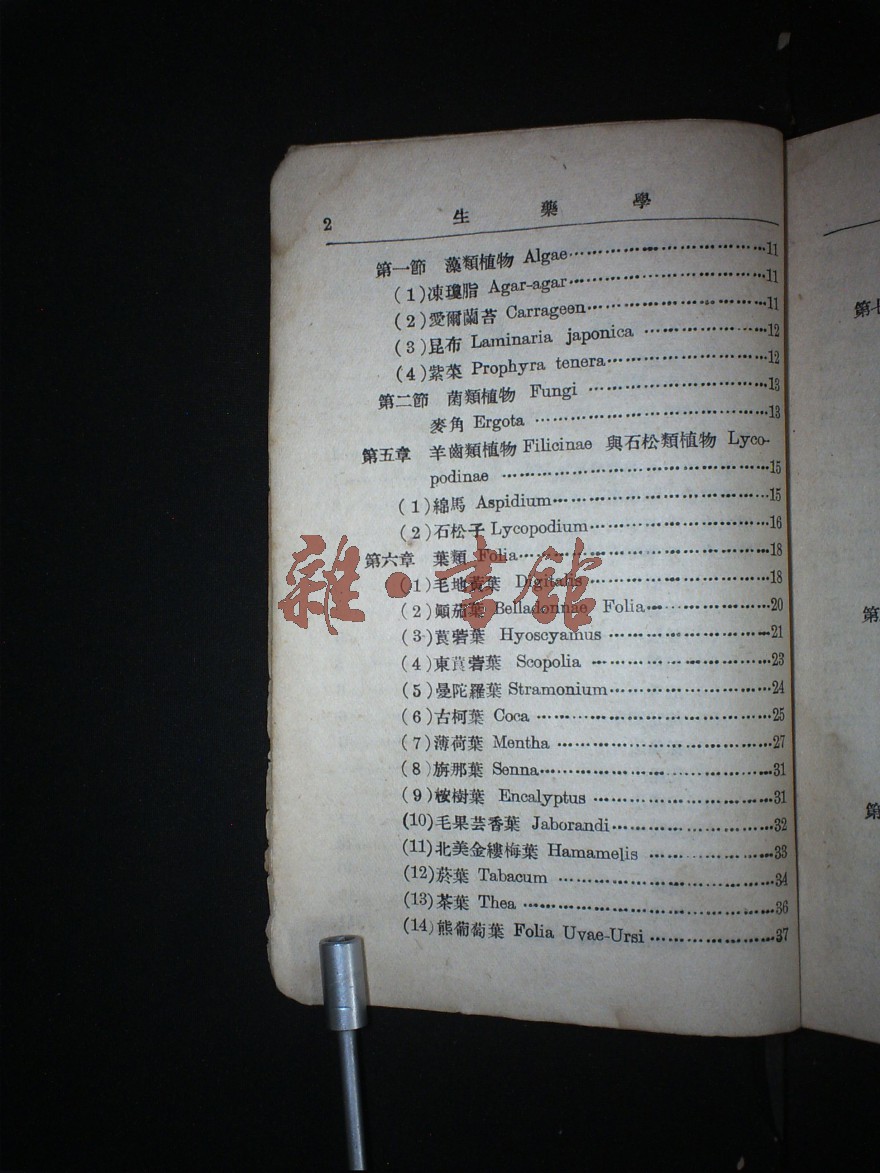 2 生藥學
第一節 藻類植物 Algae……………………11
(1)凍瓊脂 Agar-agar……………………11
(2)愛爾蘭苔 Carrageen……………………11
(3)昆布 Laminaria japonica……………………12
(4)紫菜 Prophyra tenera……………………12
第二節 菌類植物 Fungi……………………13
麥角 Ergota……………………13
第五章 羊齒類植物 Filicinae 與石松類植物 Lyco-
podinae……………………15
(1)綿馬 Aspidium……………………15
(2)石松子 Lycopodium……………………16
第六章 葉類 Folia……………………18
(1)毛地黃葉 Digitalis……………………18
(2)顚茄葉 Belladonnae Folia……………………20
(3)莨菪葉 Hyoscyamus……………………21
(4)東莨菪葉 Scopolia……………………23
(5)曼陀羅葉 Stramonium……………………24
(6)古柯葉 Coca……………………25
(7)薄荷葉 Mentha……………………27
(8)旃那葉 Senna……………………31
(9)桉樹葉 Encalyptus……………………31
(10)毛果芸香葉 Jaborandi……………………32
(11)北美金縷梅葉 Hamamelis……………………33
(12)菸葉 Tabacum……………………34
(13)茶葉 Thea……………………36
(14)熊葡萄葉 Folia Uvae-Ursi……………………37
雜·書館
第
第
第